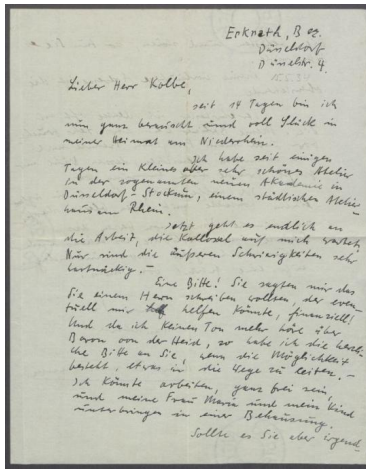 Erkrath, Bez.
Düsseldorf
Düsselstr. 4.
Lieber Herr Kolbe,
seit 14 Tagen bin ich
nun ganz berauscht und voll Glück in
meiner Heimat am Niederrhein.
Ich habe seit einigen
Tagen ein kleines aber sehr schönes Atelier
in der sogenannten neuen Akademie in
Düsseldorf-Stockum, einem städtisches Atelier-
haus am Rhein.
Jetzt geht es endlich an
die Arbeit, die kollosal auf mich wartet.
Nur sind die äußeren Schwierigkeiten sehr
hartnäckig.-
Eine Bitte! Sie sagten mir das
Sie einem Herrn schreiben wollten, der even-
tuell mir helfen könnte, finanziell!
Und da ich keinen Ton mehr höre über
Baron von der Heid, so habe ich die herzli-
che Bitte an Sie, wenn die Möglichkeit
besteht, etwas in die Wege zu leiten.-
Ich könnte arbeiten, ganz frei sein,
und meine Frau Maria und mein Kind
unterbringen in einer Behausung.
Sollte es Sie aber irgend-